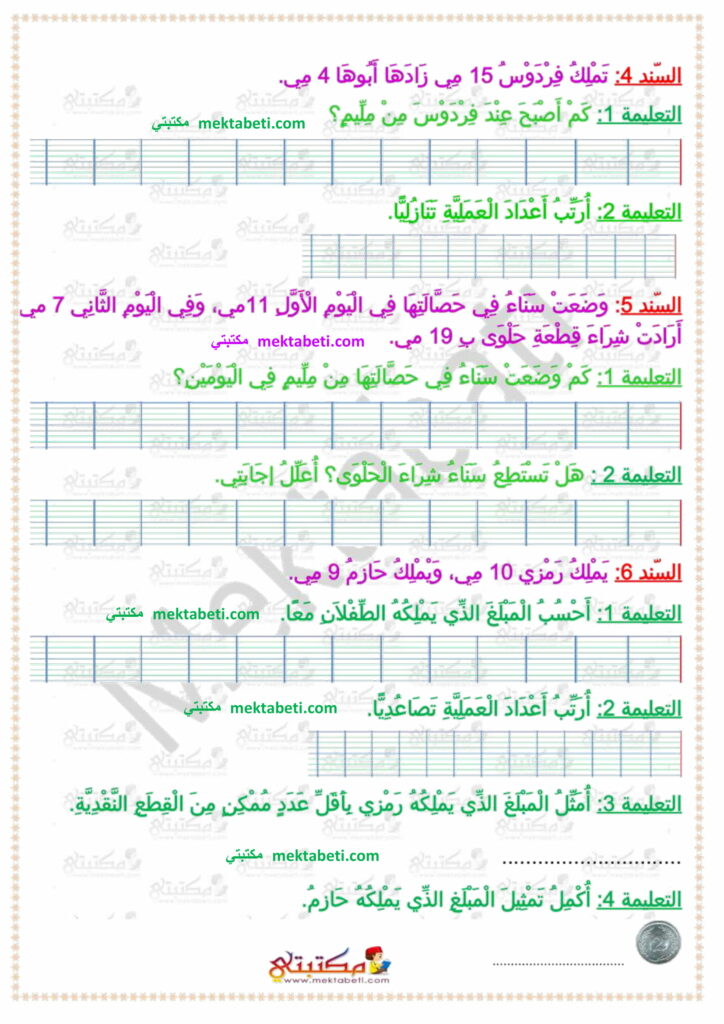 السّند 4: تَمْلِكُ فِرْدَوْسُ 15 مِي زَادَهَا أَبُوهَا 4 مِي.
التعليمة 1: كَمْ أَصْبَحَ عِنْدَ فِرْدَوْسَ مِنْ مِلِّيمٍ؟ mektabeti.com مكتبتي
التعليمة 2: أُرَتِّبُ أَعْدَادَ الْعَمَلِيَّةِ تَنَازُلِيًّا.
السّند 5: وَضَعَتْ سَنَاءُ فِي حَصَّالَتِهَا فِي الْيَوْمِ الْأَوَّلِ 11مي، وَفِي الْيَوْمِ الثَّانِي 7 مي
أَرَادَتْ شِرَاءَ قِطْعَةِ حَلْوَى بِ 19 مي. mektabeti.com مكتبتي
التعليمة 1: كَمْ وَضَعَتْ سَنَاءُ فِي حَصَّالَتِهَا مِنْ مِلِّيمٍ فِي الْيَوْمَيْنِ؟
التعليمة 2 : هَلْ تَسْتَطِعُ سَنَاءُ شِرَاءَ الْحَلْوَى؟ أُعَلِّلُ إجَابَتِي.
السّند 6: يَمْلِكُ رَمْزِي 10 مِي، وَيْمْلِكُ حَازِمُ 9 مِي.
التعليمة 1: أَحْسُبُ الْمَبْلَغَ الذِّي يَمْلِكُهُ الطِّفْلاَنِ مَعًا. mektabeti.com مكتبتي
التعليمة 2: أُرَتِّبُ أَعْدَادَ الْعَمَلِيَّةِ تَصَاعُدِيًّا. mektabeti.com مكتبتي
التعليمة 3: أُمَثِّلُ الْمَبْلَغَ الذِّي يَمْلِكُهُ رَمْزِي بِأَقَلِّ عَدَدٍ مُمْكِنٍ مِنَ الْقِطَعِ النَّقْدِيَّةِ.
.............................. mektabeti.com مكتبتي
التعليمة 4: أُكْمِلُ تَمْثِيلَ الْمَبْلَغِ الذِّي يَمْلِكُهُ حَازِمُ.
2 ..............................
مكتبتي
www.mektabeti.com
Mektabati